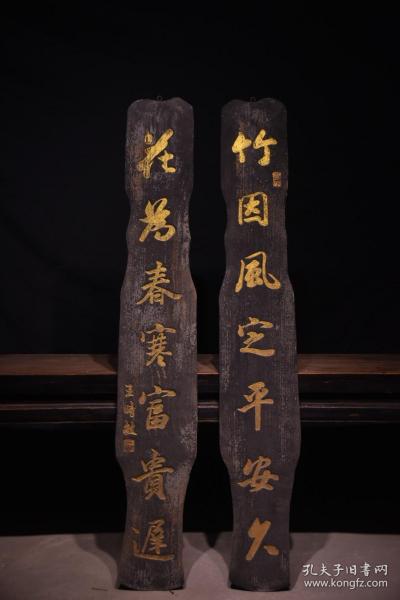 竹因風定平安久
花為春寒富貴遲
王時敏
孔夫子旧书网
www.kongfz.com